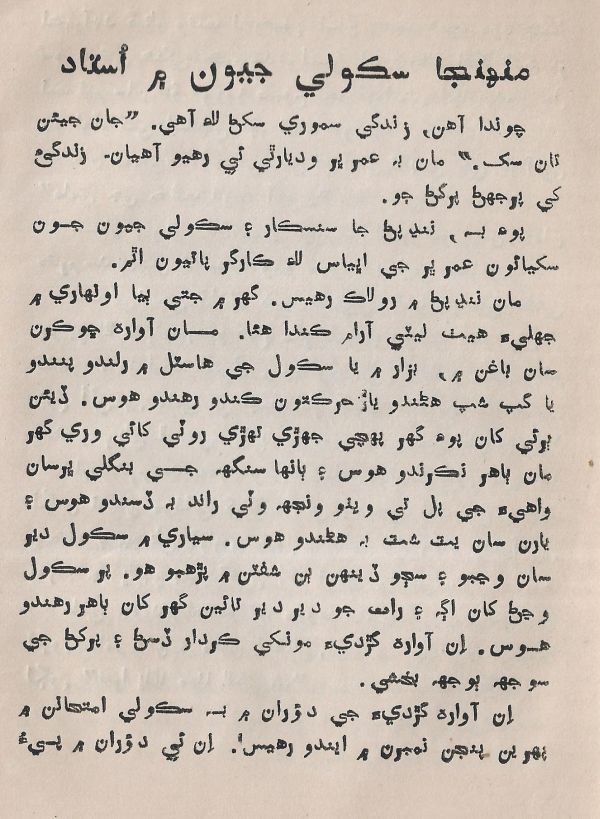 منھنجا سکولي جيون ۾ اُستاد
چوندا آهن، زندگي سموري سکڻ لاءِ آهي. ”جان جيئن
تان سک.“ مان بہ عمر ڀر وديارٿي ئي رهيو آهيان۔ زندگيءَ
کي پرجهڻ پرکڻ جو.
پوءِ بہ، ننڍپڻ جا سنسڪار ۽ سڪولي جيون جون
سکيائون عمر ڀر جي اڀياس لاءِ ڪارگر ڀائيون اٿم.
مان ننڍپڻ ۾ رولاڪ رهيس. گهر ۾ جتي ٻيا اونهاري ۾
جهليءَ هيٺ ليٽي آرام ڪندا هئا. مان آوارہ ڇوڪرن
سان باغن ۾، بزار ۾ يا سڪول جي هاسٽل ۾ رلندو پنندو
يا گپ شپ هڻندو يا ڙ حرڪتون ڪندو رهندو هوس. ڏيئن
ٻرئي کان پوءِ گهر پهچي جهڙي تهڙي روٽي کائي وري گهر
مان ٻاهر نڪرندو هوس ۽ ٻانهاسنگهہ جي بنگلي ڀرسان
واهيءَ جي پل تي ويٺو ونجهہ وٽي راند بہ ڏسندو هوس ۽
يارن سان ٻٽ شٽ بہ هڻندو هوس. سياري ۾ سڪول دير
سان وڃبو ۽ سڄو ڏينهن ٻن شفٽن ۾ پڙهبو هو. پر سڪول
وڃڻ کان اڳہ ۽ رات جو دير دير تائين گهر کان ٻاهر رهندو
هوس. اِن آوارہ گرديءَ مونکي ڪردار ڏسڻ ۽ پرکڻ جي
سوجهہ ٻوجهہ بخشي.
اِن آوارہ گرديءَ جي دؤران ۾ بہ سڪولي امتحانن ۾
پهرين پنجن نمبرن ۾ ايندو رهيس. اِن ئي دؤران ۾